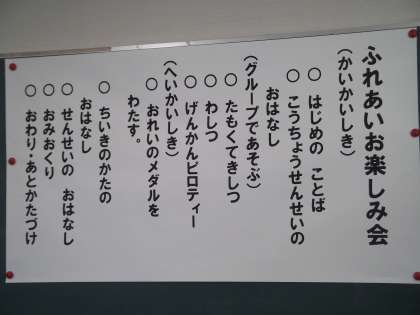 ふれあいお楽しみ会
(かいかいしき)
○ はじめの ことば
○ こうちょうせんせいの
おはなし
(グループであそぶ)
○ たもくてきしつ
○ わしつ
○ げんかんピロティー
(へいかいしき)
○ おれいのメダルを
わたす。
○ ちいきのかたの
おはなし
○ せんせいの おはなし
○ おみおくり
○ おわり・あとかたづけ